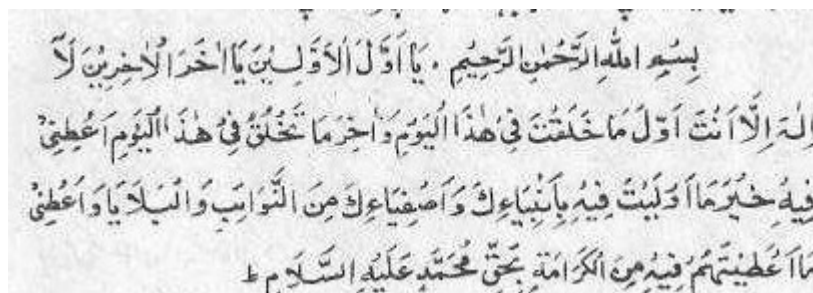 بِسْمِ اللهِ الرَّحْمٰنِ الرَّحِيْمِ . يَا اَوَّلَ الْاَوَّلِيْنَ يَا اٰخَرَ الْاٰخِرِيْنَ لَآ
اِلٰهَ اِلَّا اَنْتَ اَوَّلَ مَا خَلَقْتَ فِىْ هٰذَا الْيَوْمِ وَاٰخِرَ مَا تَخْلُقُ فِىْ هٰذَا الْيَوْمِ اَعْطِنِىْ
فِيْهِ خَيْرَ مَا اَوْلَيْتَ فِيْهِ بِاَنْبِيَاءِكَ وَاَصْفِيَاءِكَ مِنَ النَّوَائِبِ وَالْبَلَايَا وَاَعْطِنِىْ
مَا اَعْطَيْتَهُمْ فِيْهِ مِنَ الْكَرَامَةِ بِحَقِّ مُحَمَّدٍ عَلَيْهِ السَّلَامِ ط